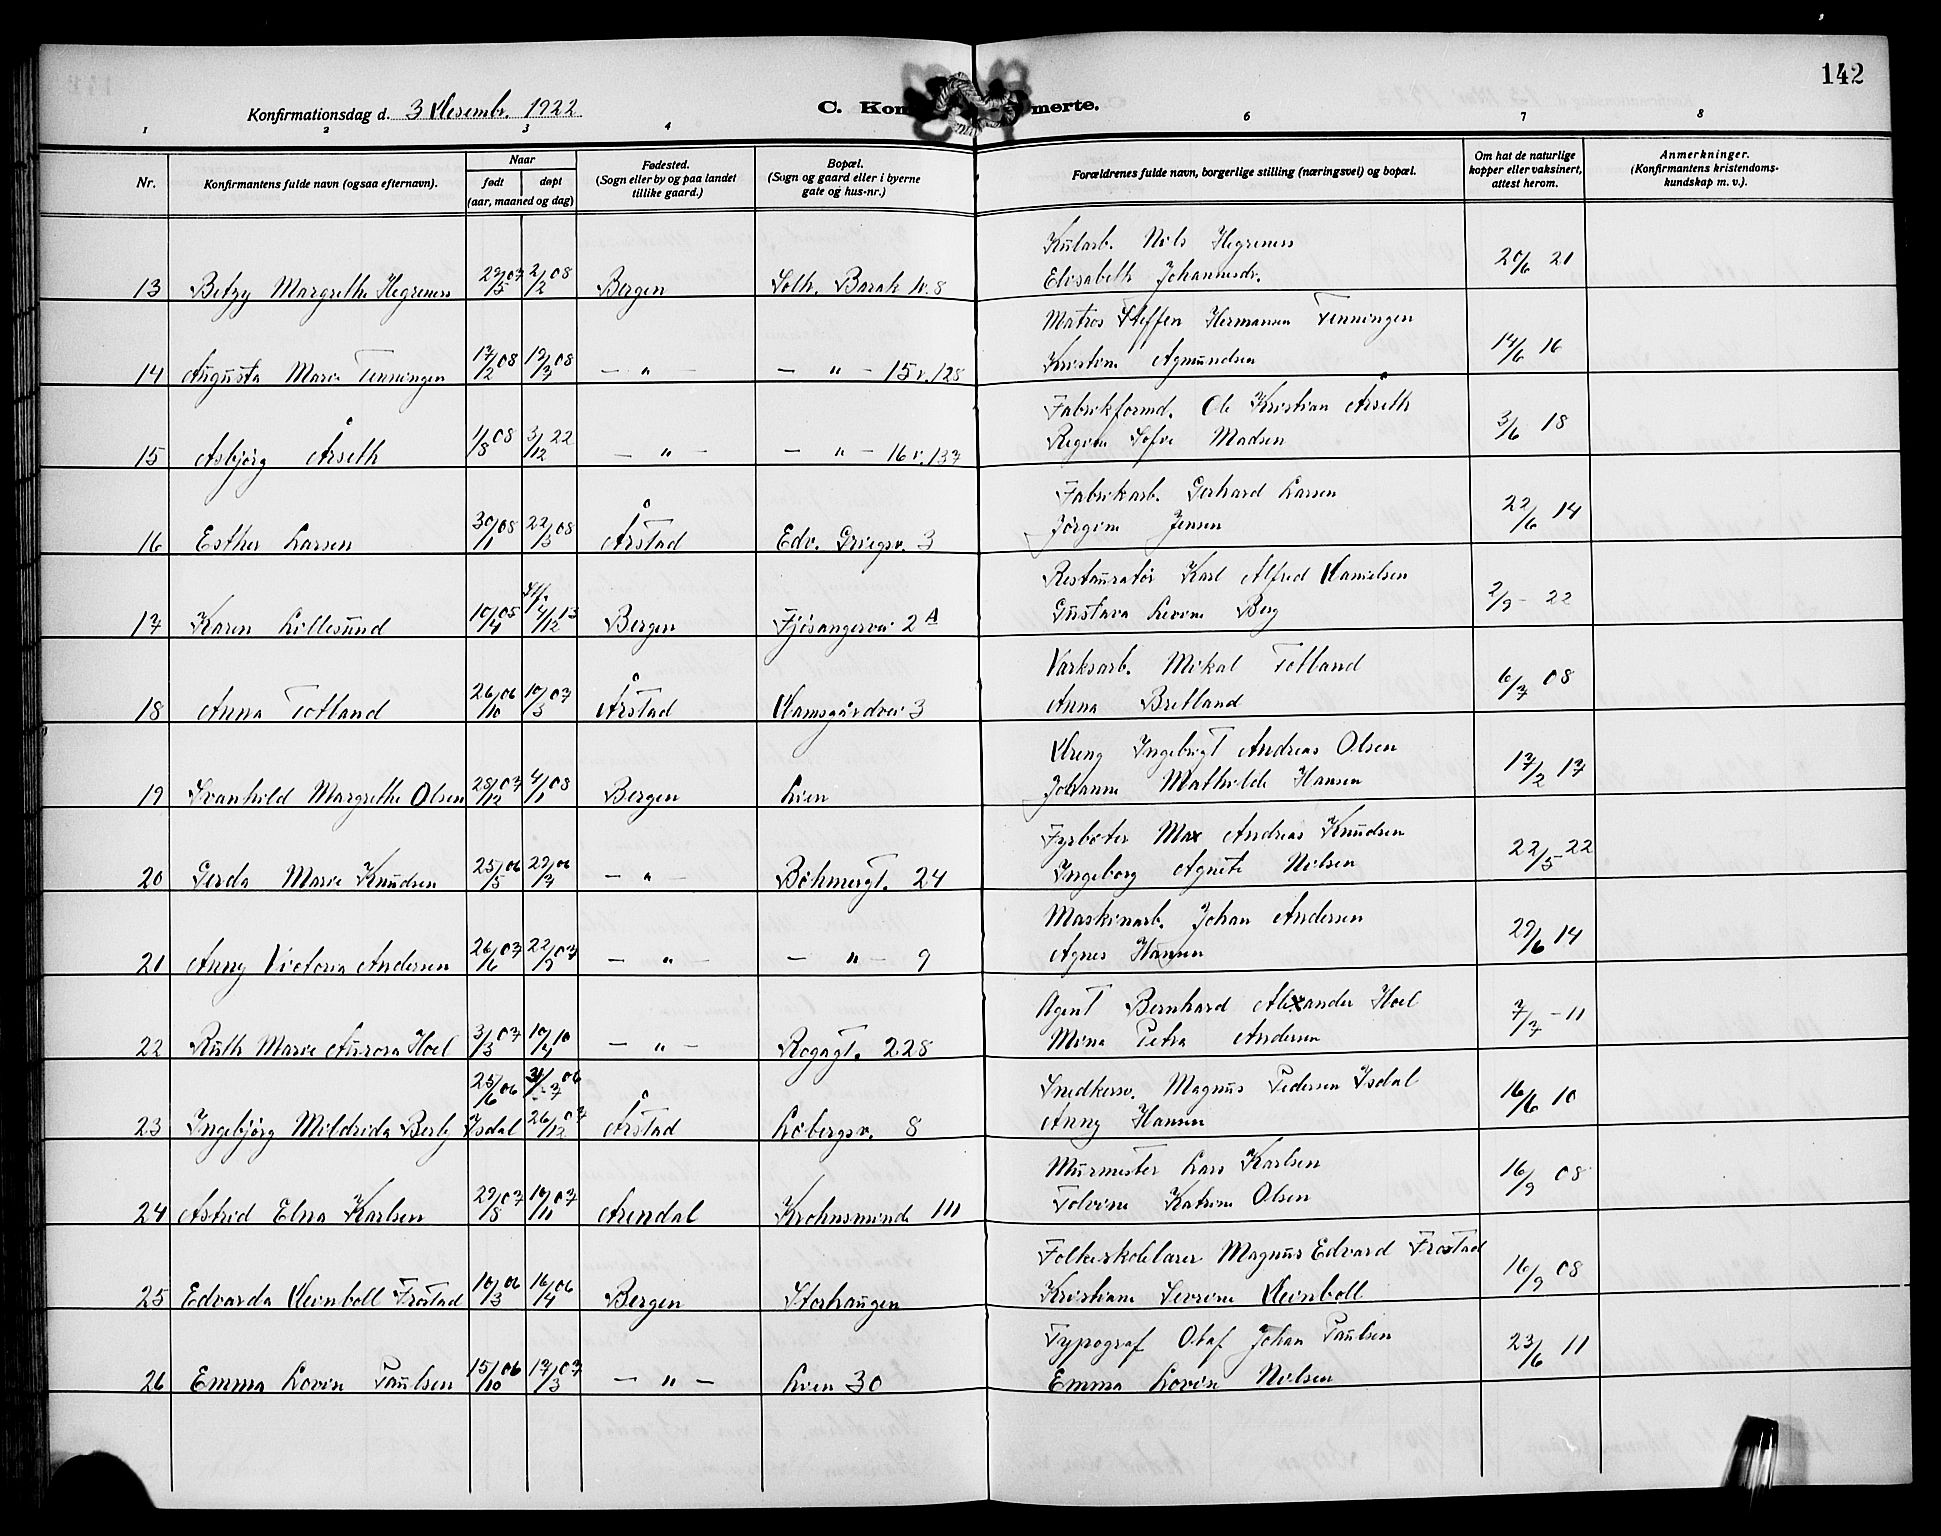 142
Konfirmationsdag d. 3 Desembr. 1922
C. Kon merte.
1 2 3 4 6 7 8
Nr.
Konfirmantens fulde navn (ogsaa efternavn).
Naar
født døpt
(aar, maaned og dag)
Fødested.
(Sogn eller by og paa landet
tillike gaard.)
Bopæl.
(Sogn og gaard eller i byerne
gate og hus-nr.)
Forældrenes fulde navn, borgerlige stilling (næringsvei) og bopæl.
Om hat de naturlige
kopper eller vaksinert,
attest herom.
Anmerkninger.
(Konfirmantens kristendoms-
kundskap m. v.).
Kularb. Nils Hegrenes
13 Betzy Margrethe Hegrenes 29/5 07 2/2 08 Bergen Solh. Barak N. 8 Elisabeth Johannesdr. 20/6 21
Matros Steffen Hermansen Tenningen
14 Augusta Marie Tenningen 17/2 08 12/3 08 — " — — " — 15 v. 128 Kristine Agmundsen 14/6 16
Fabrikformd. Ole Kristian Årseth
15 Asbjørg Årseth 4/8 08 3/12 22 — " — — " — 16 v. 137 Regine Sofie Madsen 3/6 18
Fabrikarb. Gerhard Larsen
16 Esther Larsen 30/1 08 22/3 08 Årstad Edv. Griegsv. 3 Jørgine Jensen 22/6 14
Restauratør Karl Alfred Danielsen
17 Karen Lillesund 10/4 05 4/12 13 Bergen Fjøsangervei 2 A Gustava Levine Berg 2/9 - 22
Værksarb. Mikal Totland
18 Anna Totland 26/10 06 10/3 07 Årstad Damsgårdvei 3 Anna Bretland 6/7 08
Dreng Ingebrigt Andreas Olsen
19 Svanhild Margrethe Olsen 28/12 07 4/1 08 Bergen Lien Johanne Mathilde Hansen 17/2 17
Fyrbøter Max Andreas Knudsen
20 Gerda Marie Knudsen 25/5 06 29/7 06 — " — Bøhmergt. 24 Ingeborg Agnete Nilsen 22/5 22
Maskinarb. Johan Andersen
21 Anny Victoria Andersen 26/6 07 22/9 07 — " — — " — 9 Agnes Hansen 29/6 14
Agent Bernhard Alexander Hoel
22 Ruth Marie Aurora Hoel 3/3 07 10/4 10 — " — Rogagt. 228 Mina Petra Andersen 7/7 - 11
Snedkersv. Magnus Pedersen Isdal
23 Ingebjørg Mildrida Berly Isdal 25/6 06 26/12 07 Årstad Løbergsv. 8 Anny Hansen 16/6 10
Murmester Lars Karlsen
24 Astrid Elna Karlsen 29/8 07 10/11 07 Arendal Krohnsminde 111 Tolvine Katrine Olsen 16/9 08
Folkeskolelærer Magnus Edvard Frostad
25 Edvarda Deinboll Frostad 10/3 06 16/4 06 Bergen Storhaugen Kristiane Severine Deinboll 16/9 08
Typograf Olaf Johan Paulsen
26 Emma Lovise Paulsen 15/10 06 17/3 07 — " — Lien 30 Emma Lovise Nielsen 23/6 11